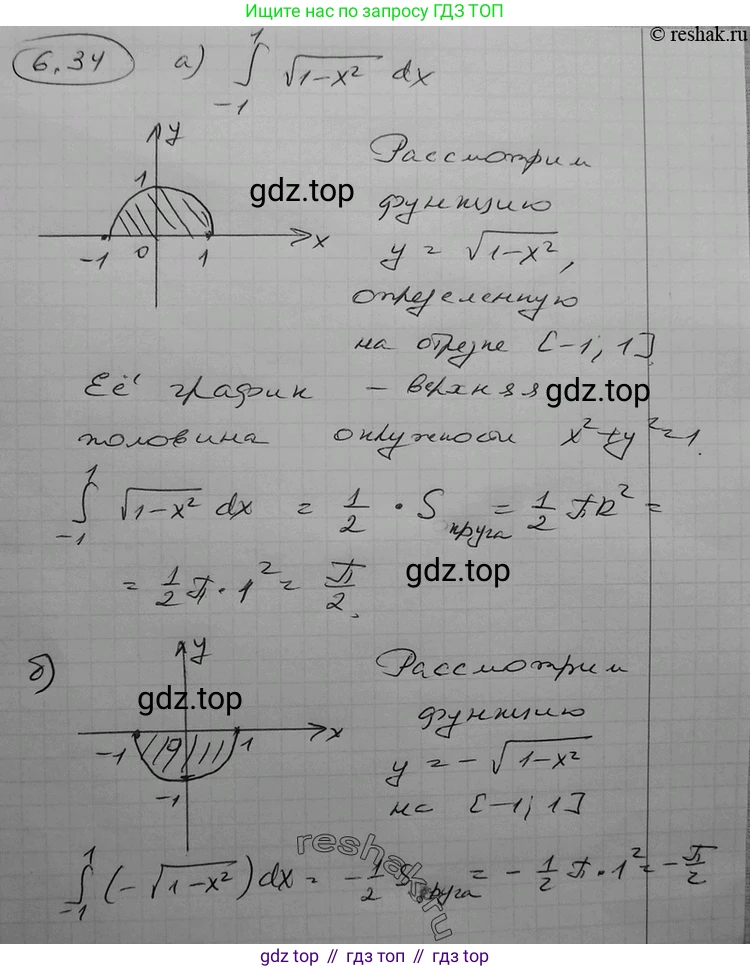 Ищите нас по запросу ГДЗ ТОП
© reshak.ru
6.34 а) ∫₋₁¹ √(1-x²) dx
y
1
-1 0 1 x
gdz.top
Рассмотрим
функцию
y = √(1-x²),
определенную
на отрезке [-1; 1].
Её график - верхняя
gdz.top
половина окружности x²+y²=1.
∫₋₁¹ √(1-x²) dx = 1/2 · S круга = 1/2 πR² =
= 1/2 π · 1² = π/2.
gdz.top
б)
y
gdz.top
-1 1 x
-1
Рассмотрим
функцию
y = -√(1-x²)
на [-1; 1]
reshak.ru
∫₋₁¹ (-√(1-x²)) dx = -1/2 S круга = -1/2 π · 1² = -π/2
gdz.top // гдз топ // gdz.top // гдз топ